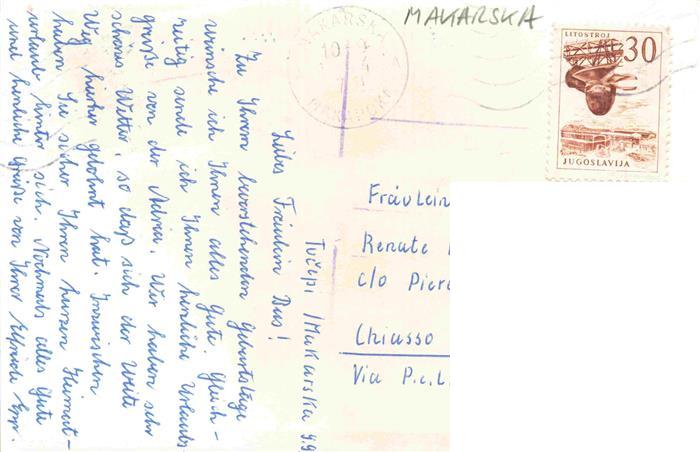 MAKARSKA
MAKARSKA
LITOSTROJ
30
JUGOSLAVIJA
Tučepi /Makarska 9.9
Liebes Fräulein
Zu Ihrem bevorstehenden Geburtstage
wünsche ich Ihnen alles Gute. Gleich-
zeitig sende ich Ihnen herzliche Urlaubs
grüße von der Adria. Wir haben sehr
schönes Wetter, so daß sich der weite
Weg hierher gelohnt hat. Inzwischen
haben Sie sicher Ihren kurzen Heimat-
urlaub hinter sich. Nochmals alles Gute
und herzliche Grüße von Ihrer Elfriede
Fräulein
Renate
c/o Pier
Chiasso
Via P.c.L